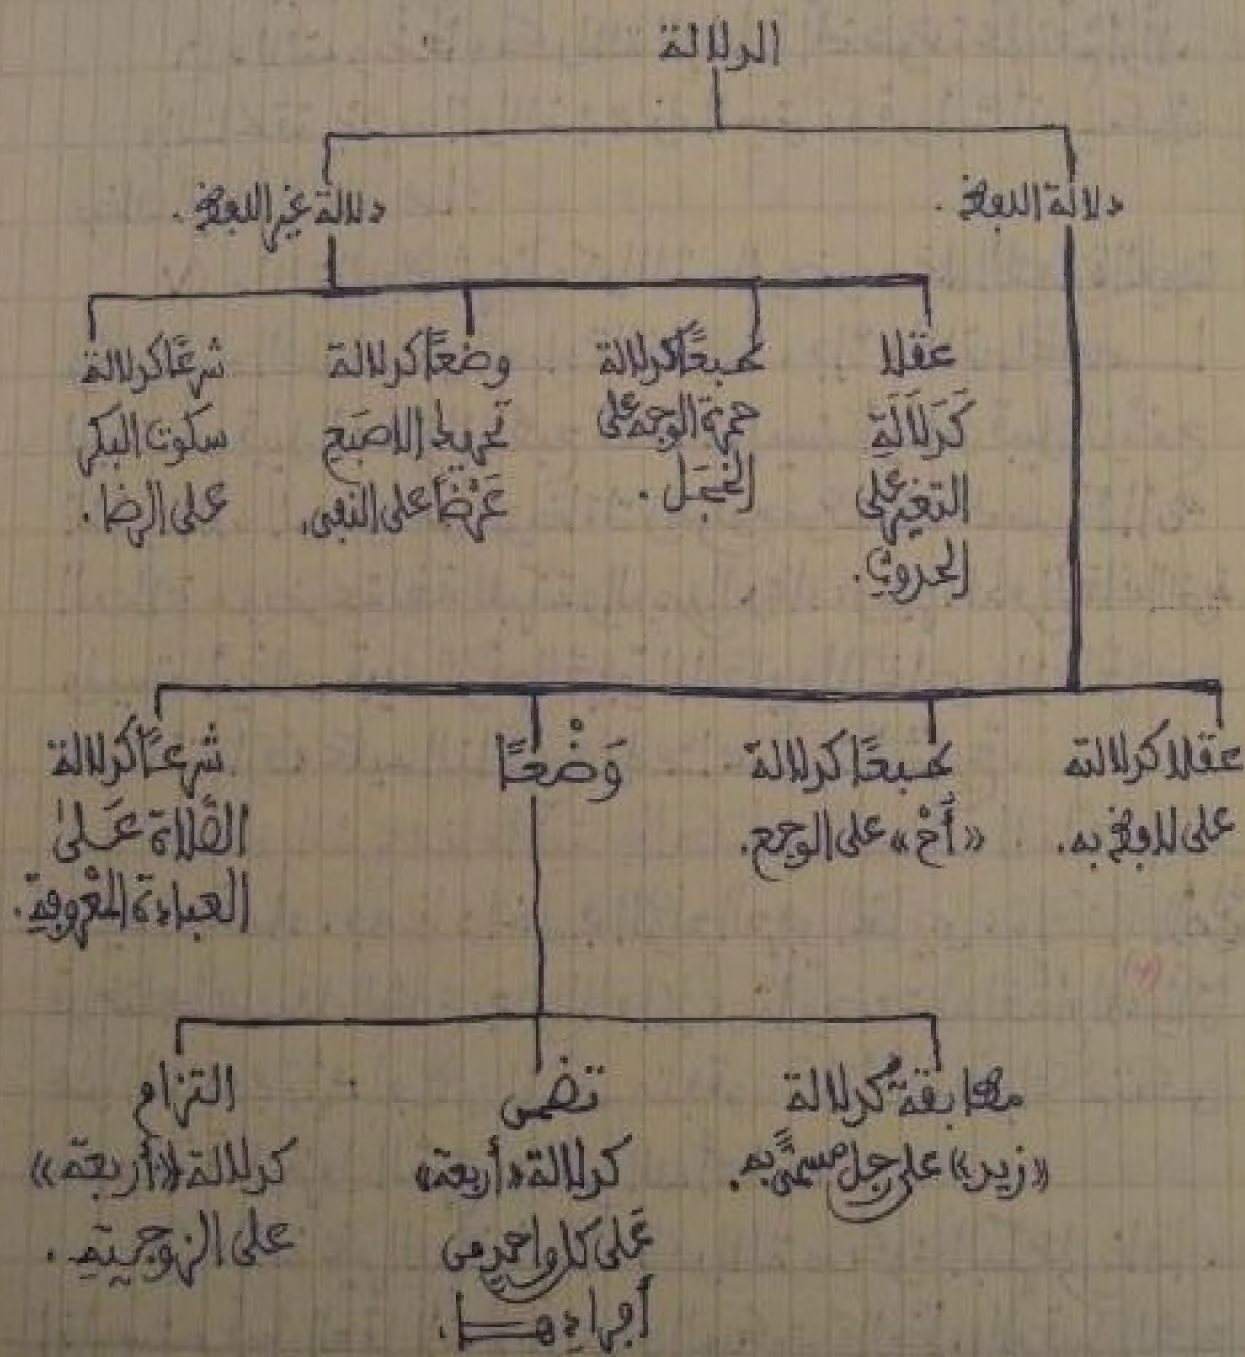 الدلالة
دلالة اللفظ.
دلالة غير اللفظ.
عقلا
كَدَلَالَةِ
التغير على
الحدوثِ.
طبعًا كدلالة
حمرة الوجه على
الخجَل.
وضعًا كدلالة
تحريك الاصبَع
عَرْضًا على النفي.
شرعًا كدلالة
سكوت البكر
على الرضا.
عقلا كدلالته
على لافظ به.
طبعًا كدلالة
«أَخْ» على الوجع.
وَضْعًا
شرعًا كدلالة
الصَّلاة عَلَىٰ
العبادة المعْروفة.
مطابقةً كدلالة
«زيد» على رجل مسمًّى به.
تضمن
كدلالة «أربعة»
على كل واحدٍ من
أجزاءِها.
التزام
كدلالة «أربعة»
على الزوجيةِ.